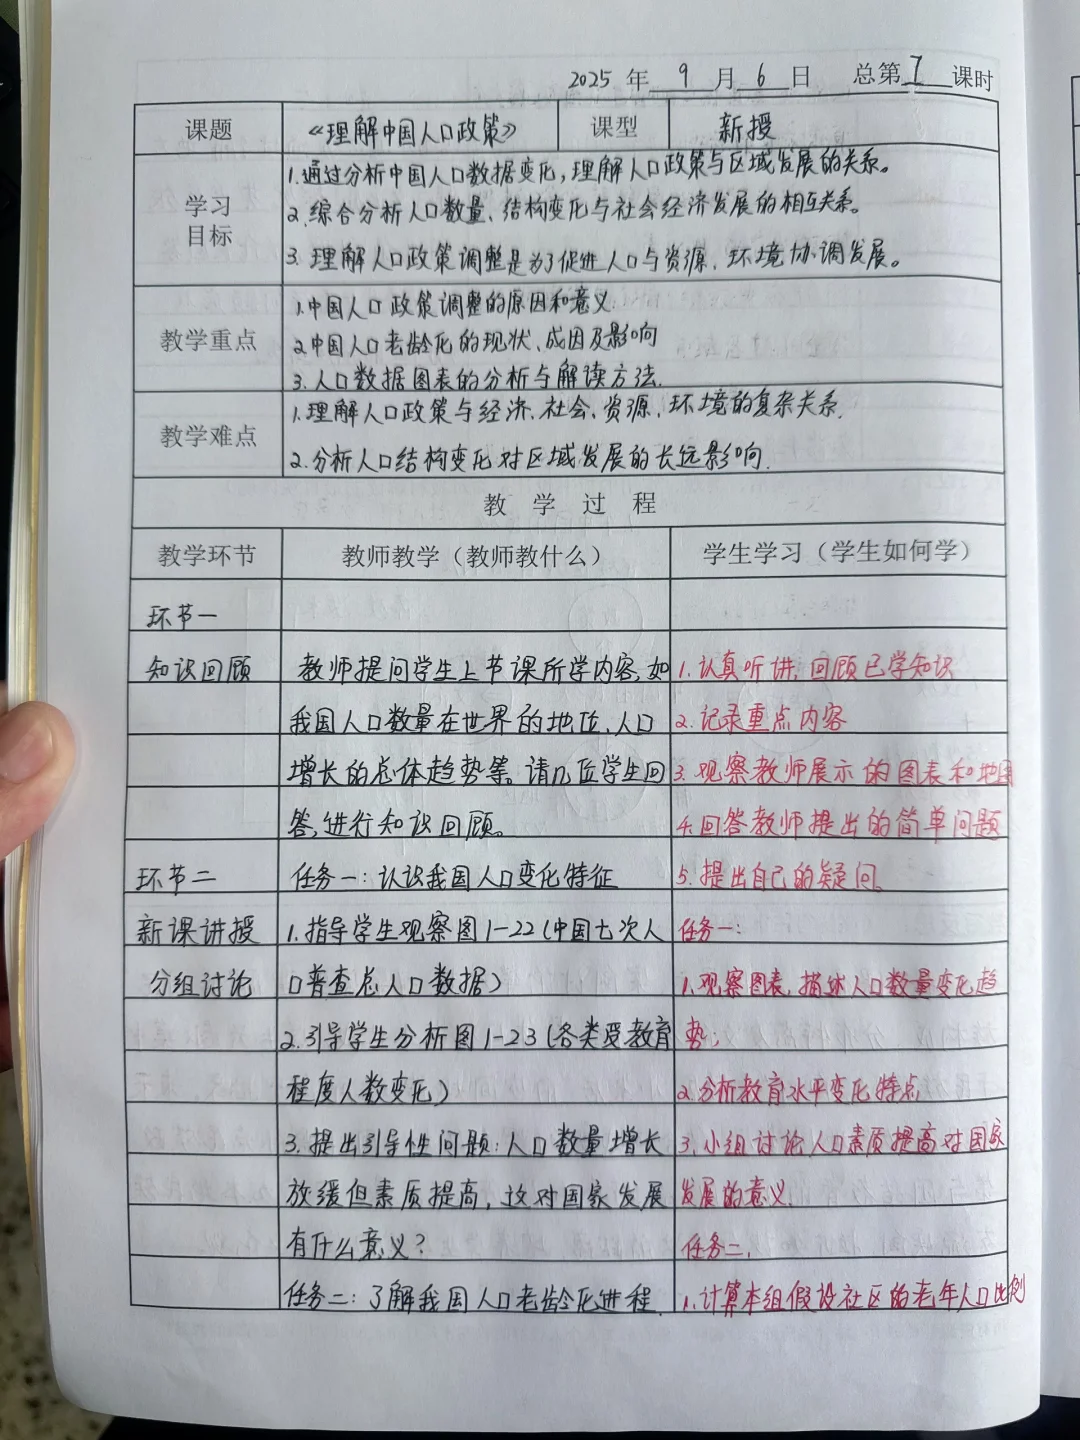 2025 年 9 月 6 日 总第 7 课时
课题 《理解中国人口政策》 课型 新授
学习目标
1.通过分析中国人口数据变化,理解人口政策与区域发展的关系。
2.综合分析人口数量、结构变化与社会经济发展的相互关系。
3.理解人口政策调整是为了促进人口与资源、环境协调发展。
教学重点
1.中国人口政策调整的原因和意义.
2.中国人口老龄化的现状、成因及影响
3.人口数据图表的分析与解读方法.
教学难点
1.理解人口政策与经济、社会、资源、环境的复杂关系.
2.分析人口结构变化对区域发展的长远影响.
教 学 过 程
教学环节 教师教学(教师教什么) 学生学习(学生如何学)
环节一
知识回顾 教师提问学生上节课所学内容,如 1.认真听讲,回顾已学知识
我国人口数量在世界的地位、人口 2.记录重点内容
增长的总体趋势等。请几位学生回 3.观察教师展示的图表和地图
答,进行知识回顾。 4.回答教师提出的简单问题
环节二 任务一:认识我国人口变化特征 5.提出自己的疑问。
新课讲授 1.指导学生观察图1-22(中国七次人 任务一:
分组讨论 口普查总人口数据) 1.观察图表,描述人口数量变化趋
2.引导学生分析图1-23(各类受教育 势.
程度人数变化) 2.分析教育水平变化特点
3.提出引导性问题:人口数量增长 3.小组讨论人口素质提高对国家
放缓但素质提高,这对国家发展 发展的意义.
有什么意义? 任务二.
任务二:了解我国人口老龄化进程 1.计算本组假设社区的老年人口比例